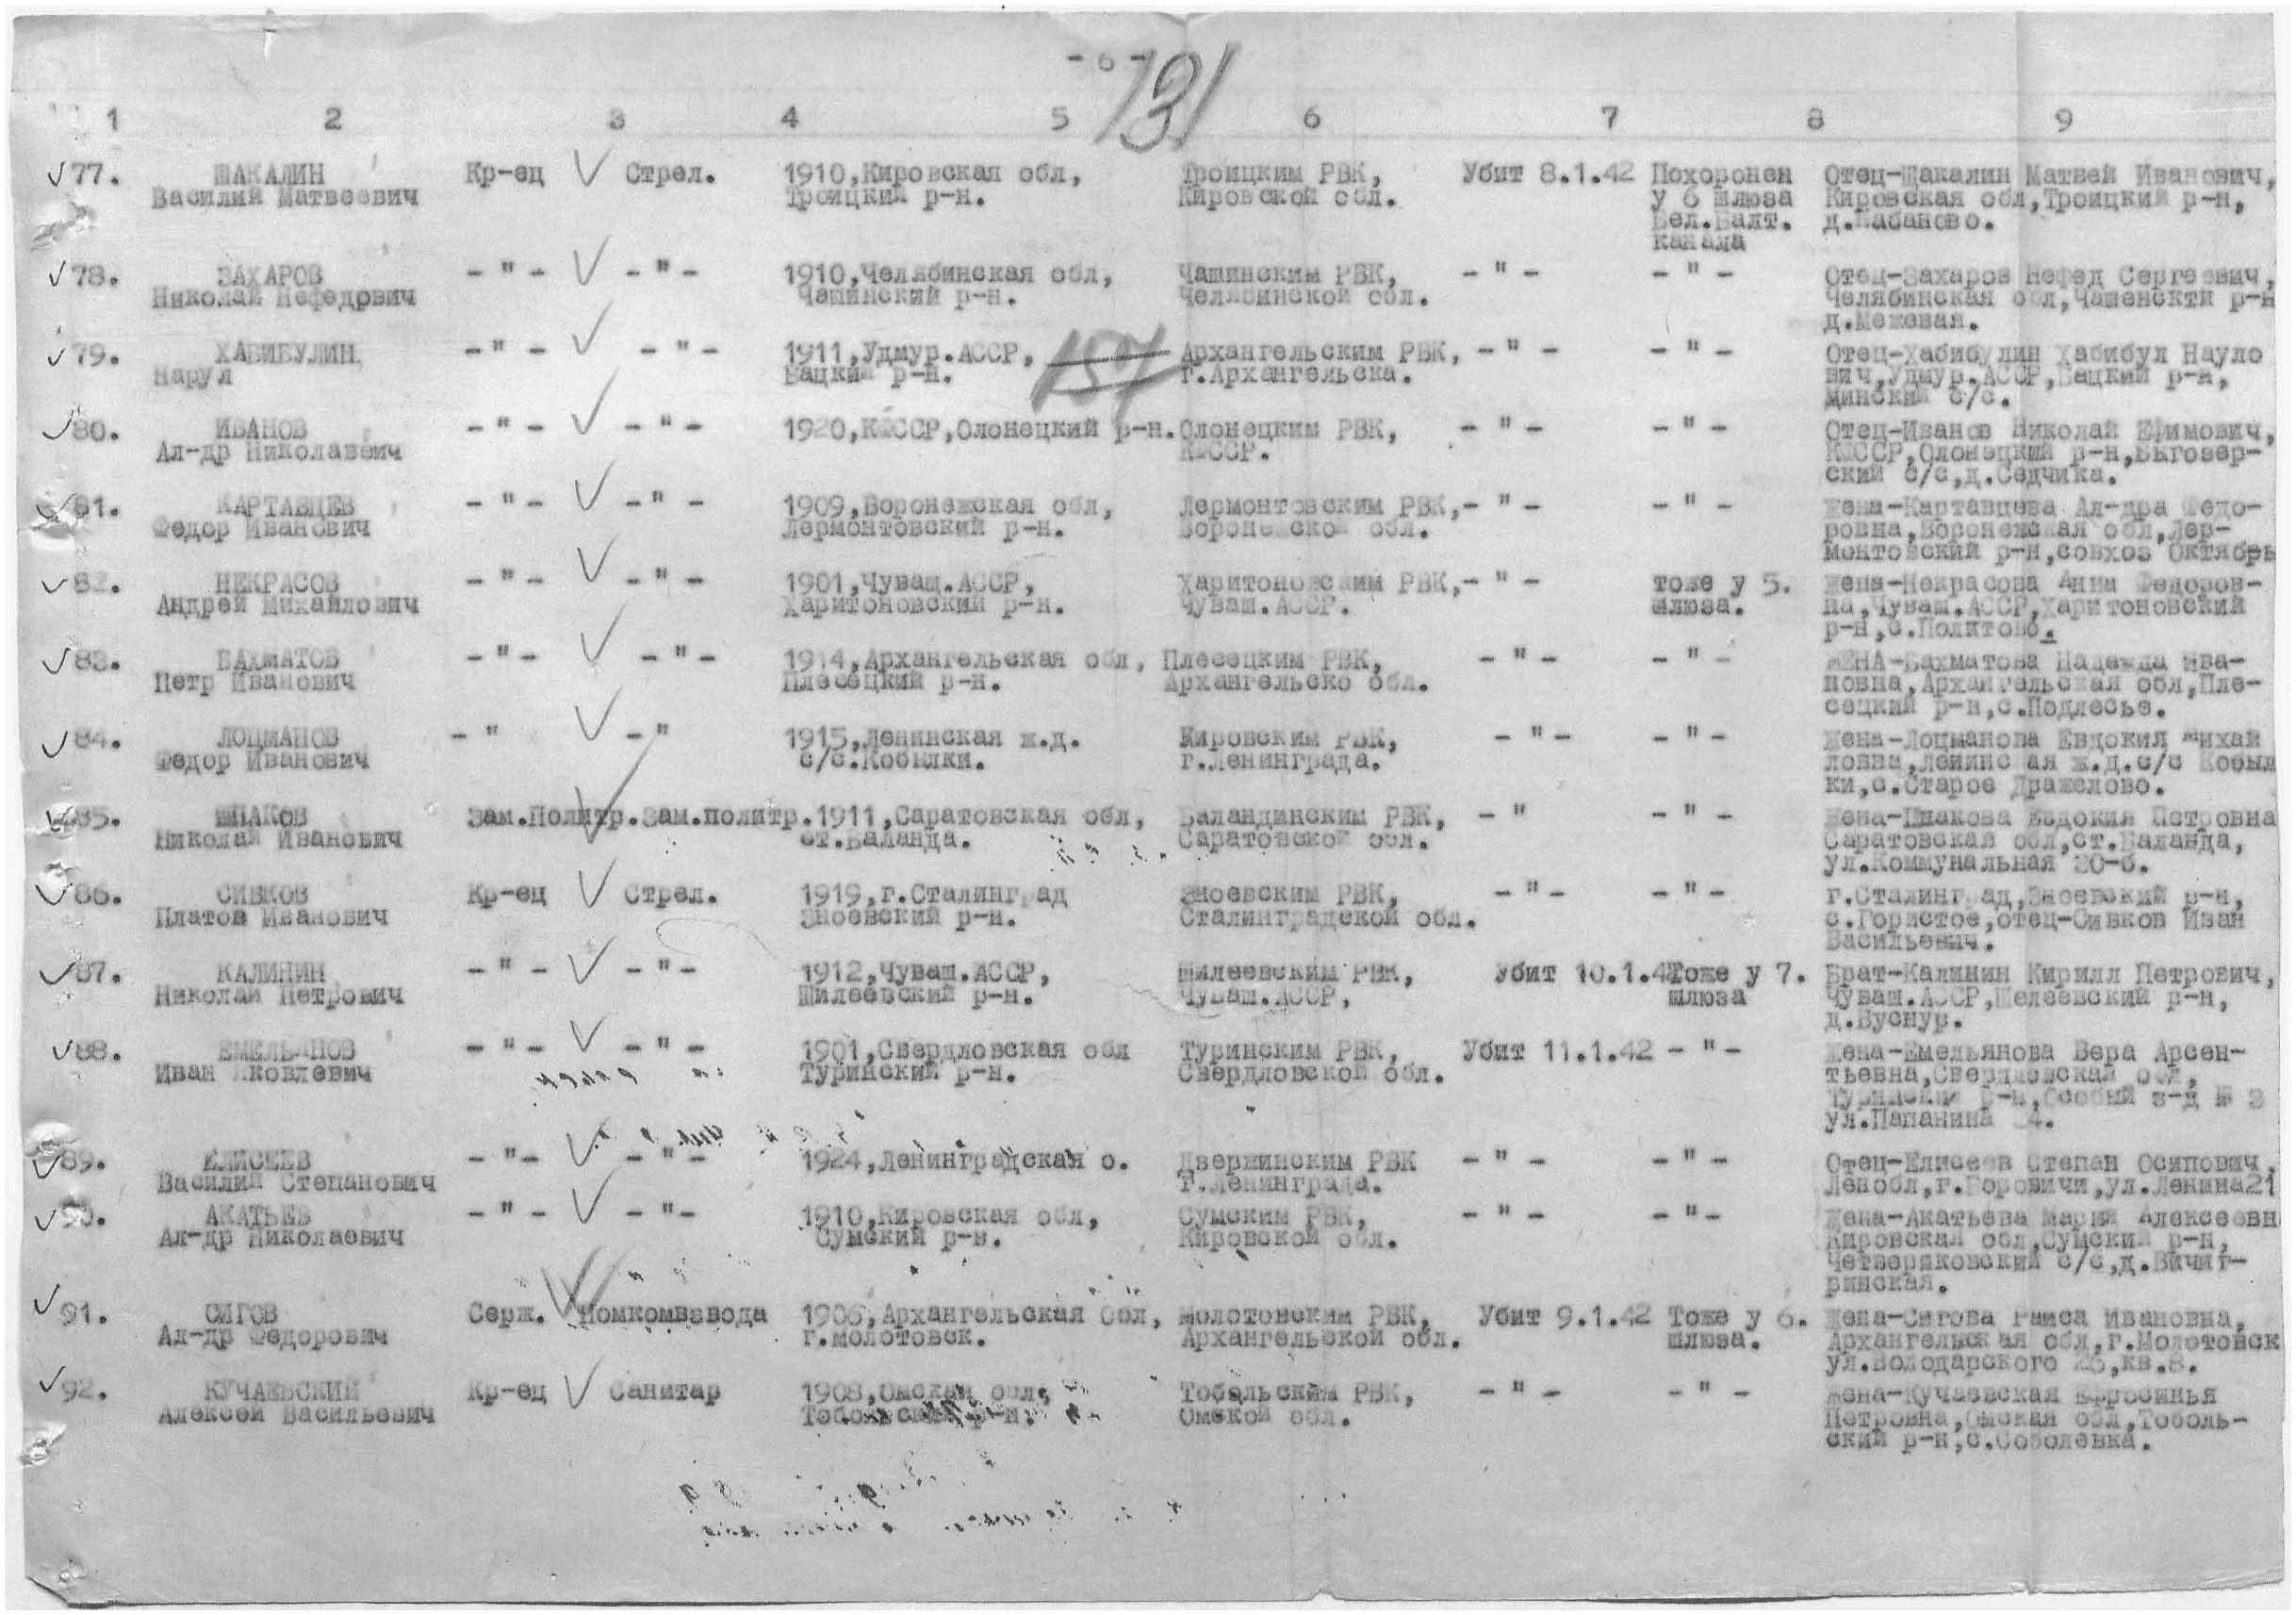 - 6 -
131
1 2 3 4 5 6 7 8 9
77. ШАКАЛИН Кр-ец Стрел. 1910,Кировская обл, Троицким РВК, Убит 8.1.42 Похоронен Отец-Шакалин Матвей Иванович,
Василий Матвеевич Троицкий р-н. Кировской обл. у 6 шлюза Кировская обл,Троицкий р-н,
Бел.Балт. д.Бабаново.
канала
78. ЗАХАРОВ - " - - " - 1910,Челябинская обл, Чашинским РВК, - " - - " - Отец-Захаров Нефед Сергеевич,
Николай Нефедович Чашинский р-н. Челябинской обл. Челябинская обл,Чашенскти р-н
д.Межевая.
79. ХАБИБУЛИН - " - - " - 1911,Удмур.АССР, 157 Архангельским РВК, - " - - " - Отец-Хабибулин Хабибул Науло
Нарул Вацкий р-н. г.Архангельска. вич,Удмур.АССР,Вацкий р-н,
Минский с/с.
80. ИВАНОВ - " - - " - 1920,КФССР,Олонецкий р-н. Олонецким РВК, - " - - " - Отец-Иванов Николай Ефимович,
Ал-др Николаевич КФССР. КФССР,Олонецкий р-н,Выгозер-
ский с/с,д.Седчика.
81. КАРТАВЦЕВ - " - - " - 1909,Воронежская обл, Лермонтовским РВК, - " - - " - Жена-Картавцева Ал-дра Федо-
Федор Иванович Лермонтовский р-н. Воронежско обл. ровна,Воронежская обл,Лер-
монтовский р-н,совхоз Октябрь
82. НЕКРАСОВ - " - - " - 1901,Чуваш.АССР, Харитоновским РВК, - " - тоже у 5. Жена-Некрасова Анна Федоров-
Андрей Михайлович Харитоновский р-н. Чуваш.АССР. шлюза. на,Чуваш.АССР,Харитоновский
р-н,с.Политово.
83. БАХМАТОВ - " - - " - 1914,Архангельская обл, Плесецким РВК, - " - - " - ЖЕНА-Бахматова Надежда Ива-
Петр Иванович Плесецкий р-н. Архангельско обл. новна,Архангельская обл,Пле-
сецкий р-н,с.Подлесье.
84. ЛОЦМАНОВ - " - " 1915,Ленинская ж.д. Кировским РВК, - " - - " - Жена-Лоцманова Евдокия Михай
Федор Иванович с/с.Кобылки. г.Ленинграда. ловна,Ленинская ж.д.с/с Кобыл
ки,с.Старое Дражелово.
85. ШПАКОВ Зам.Политр. Зам.политр. 1911,Саратовская обл, Баландинским РВК, - " - " - Жена-Шпакова Евдокия Петровна
Николай Иванович ст.Баланда. Саратовской обл. Саратовская обл,ст.Баланда,
ул.Коммунальная 30-б.
86. СИВКОВ Кр-ец Стрел. 1919,г.Сталинград Зноевским РВК, - " - - " - г.Сталинград,Зноевский р-н,
Платон Иванович Зноевский р-н. Сталинградской обл. с.Гористое,отец-Сивков Иван
Васильевич.
87. КАЛИНИН - " - - " - 1912,Чуваш.АССР, Шилеевским РВК, Убит 10.1.42 Тоже у 7. Брат-Калинин Кирилл Петрович,
Николай Петрович Шилеевский р-н. Чуваш.АССР, шлюза Чуваш.АССР,Шелеевский р-н,
д.Буснур.
88. ЕМЕЛЬЯНОВ - " - - " - 1901,Свердловская обл Туринским РВК, Убит 11.1.42 - " - Жена-Емельянова Вера Арсен-
Иван Яковлевич Туринский р-н. Свердловской обл. тьевна,Свердловская обл,
Туринский р-н,Особый з-д № 3
ул.Папанина 4.
89. ЕЛИСЕЕВ - " - - " - 1924,Ленинградская о. Дзержинским РВК - " - - " - Отец-Елисеев Степан Осипович,
Василий Степанович г.Ленинграда. Ленобл,г.Боровичи,ул.Ленина21
90. АКАТЬЕВ - " - - " - 1910,Кировская обл, Сумским РВК, - " - - " - Жена-Акатьева Мария Алексеевн
Ал-др Николаевич Сумский р-н. Кировской обл. Кировская обл,Сумский р-н,
Четверяковский с/с,д.Вичиг-
ринская.
91. СИГОВ Серж. Помкомвзвода 1906,Архангельская обл, Молотовским РВК, Убит 9.1.42 Тоже у 6. Жена-Сигова Раиса Ивановна,
Ал-др Федорович г.Молотовск. Архангельской обл. шлюза. Архангельская обл,г.Молотовск
ул.Володарского 26,кв.8.
92. КУЧАЕВСКИЙ Кр-ец Санитар 1908,Омская обл, Тобольским РВК, - " - - " - Жена-Кучаевская Ефросинья
Алексей Васильевич Тобольский р-н. Омской обл. Петровна,Омская обл,Тоболь-
ский р-н,с.Соболевка.